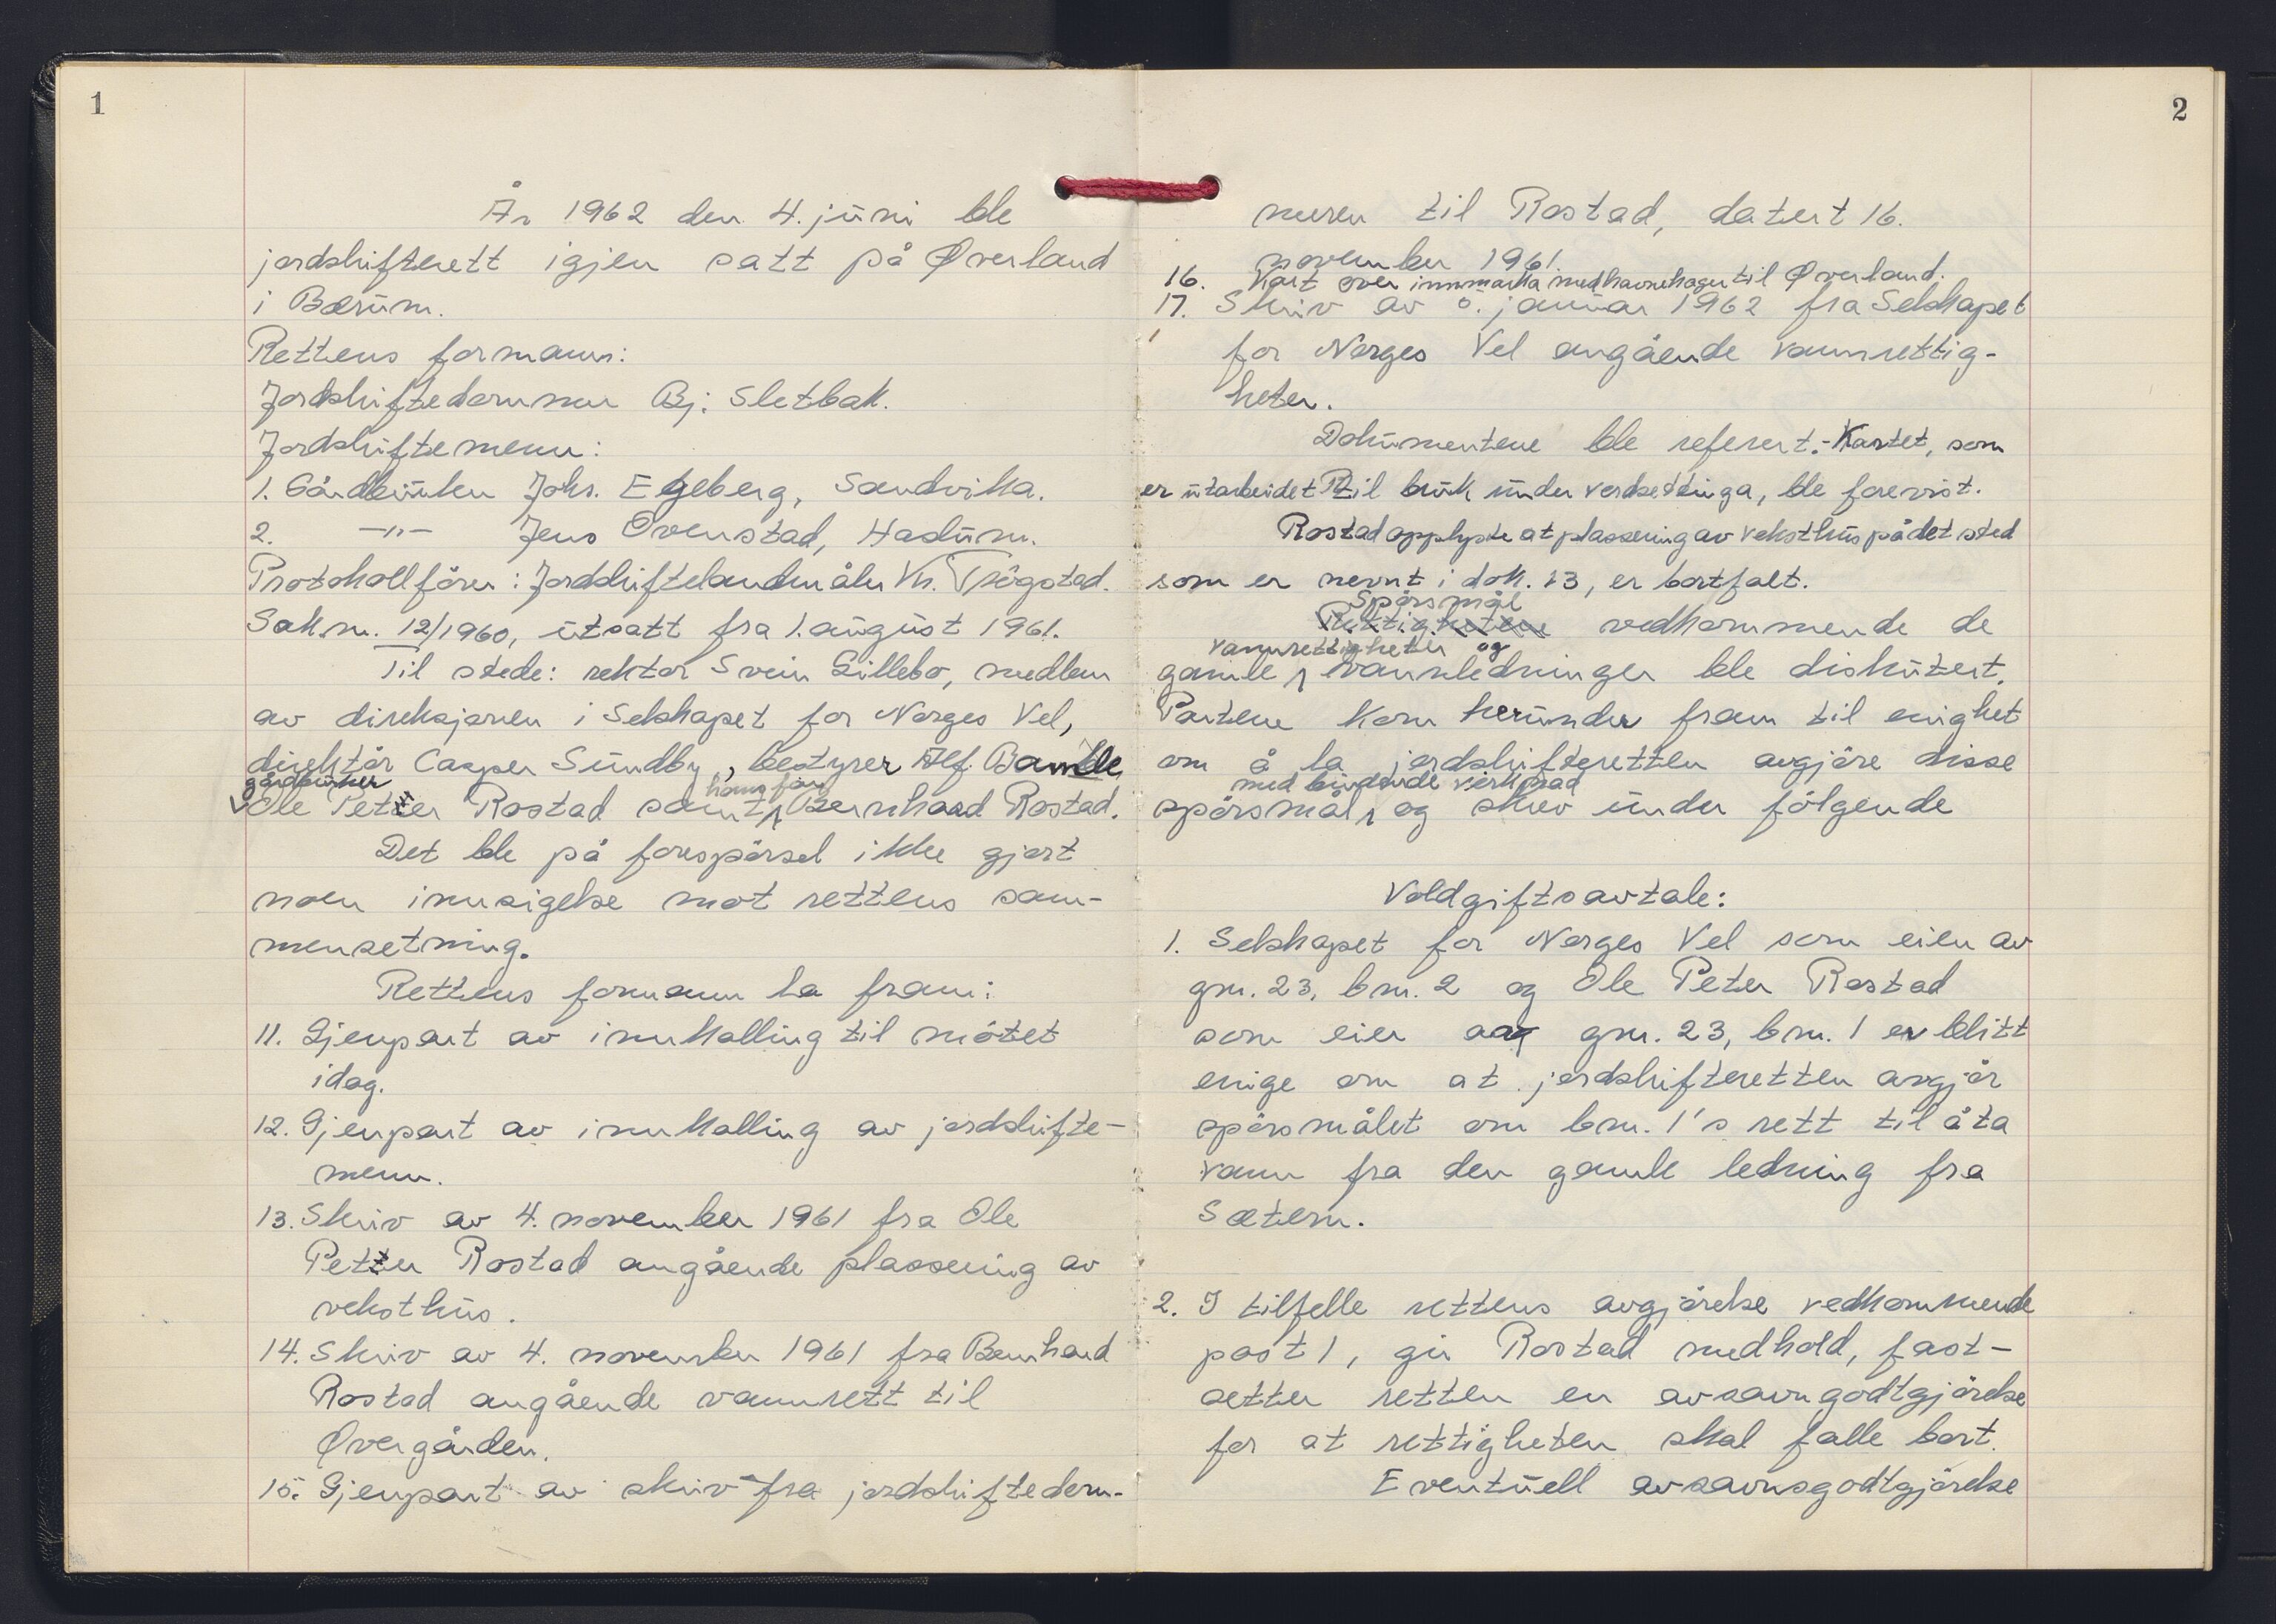 1
År 1962 den 4. juni ble
jordskifterett igjen satt på Øverland
i Bærum.
Rettens formann:
Jordskiftedommer Bj. Sletbak.
Jordskiftemenn:
1. Gårdbruker Johs. Egeberg, Sandvika.
2. —"— Jens Ovenstad, Haslum.
Protokollfører: Jordskiftelandmåler Kr. Trøgstad.
Sak nr. 12/1960, utsatt fra 1. august 1961.
Til stede: rektor Svein Gillebo, medlem
av direksjonen i Selskapet for Norges Vel,
direktør Casper Sundby, bestyrer Alf Bamble,
gårdbruker hans far
Ole Petter Rostad samt Bernhard Rostad.
Det ble på forespørsel ikke gjort
noen innsigelse mot rettens sam-
mensetning.
Rettens formann la fram:
11. Gjenpart av innkalling til møtet
idag.
12. Gjenpart av innkalling av jordskifte-
menn.
13. Skriv av 4. november 1961 fra Ole
Petter Rostad angående plassering av
veksthus.
14. Skriv av 4. november 1961 fra Bernhard
Rostad angående vannrett til
Øvergården.
15. Gjenpart av skriv fra jordskiftedom-
2
meren til Rostad, datert 16.
november 1961.
16. Kart over innmarka med havnehager til Øverland.
17. Skriv av 5. januar 1962 fra Selskapet
for Norges Vel angående vannrettig-
heter.
Dokumentene ble referert. - Kartet, som
er utarbeidet til bruk under verdsettinga, ble forevist.
Rostad opplyste at plassering av veksthus på det sted
som er nevnt i dok. 13, er bortfalt.
Spørsmål
Rettighetene vedkommende de
vannrettigheter og
gamle vannledninger ble diskutert.
Partene kom herunder fram til enighet
om å la jordskifteretten avgjøre disse
med bindende virkning
spørsmål, og skrev under følgende
Voldgiftsavtale:
1. Selskapet for Norges Vel som eier av
gnr. 23, bnr. 2 og Ole Peter Rostad
som eier av gnr. 23, bnr. 1 er blitt
enige om at jordskifteretten avgjør
spørsmålet om bnr. 1's rett til å ta
vann fra den gamle ledning fra
Sætern.
2. I tilfelle rettens avgjørelse vedkommende
post 1, gir Rostad medhold, fast-
setter retten en avsavngodtgjørelse
for at rettigheten skal falle bort.
Eventuell avsavnsgodtgjørelse